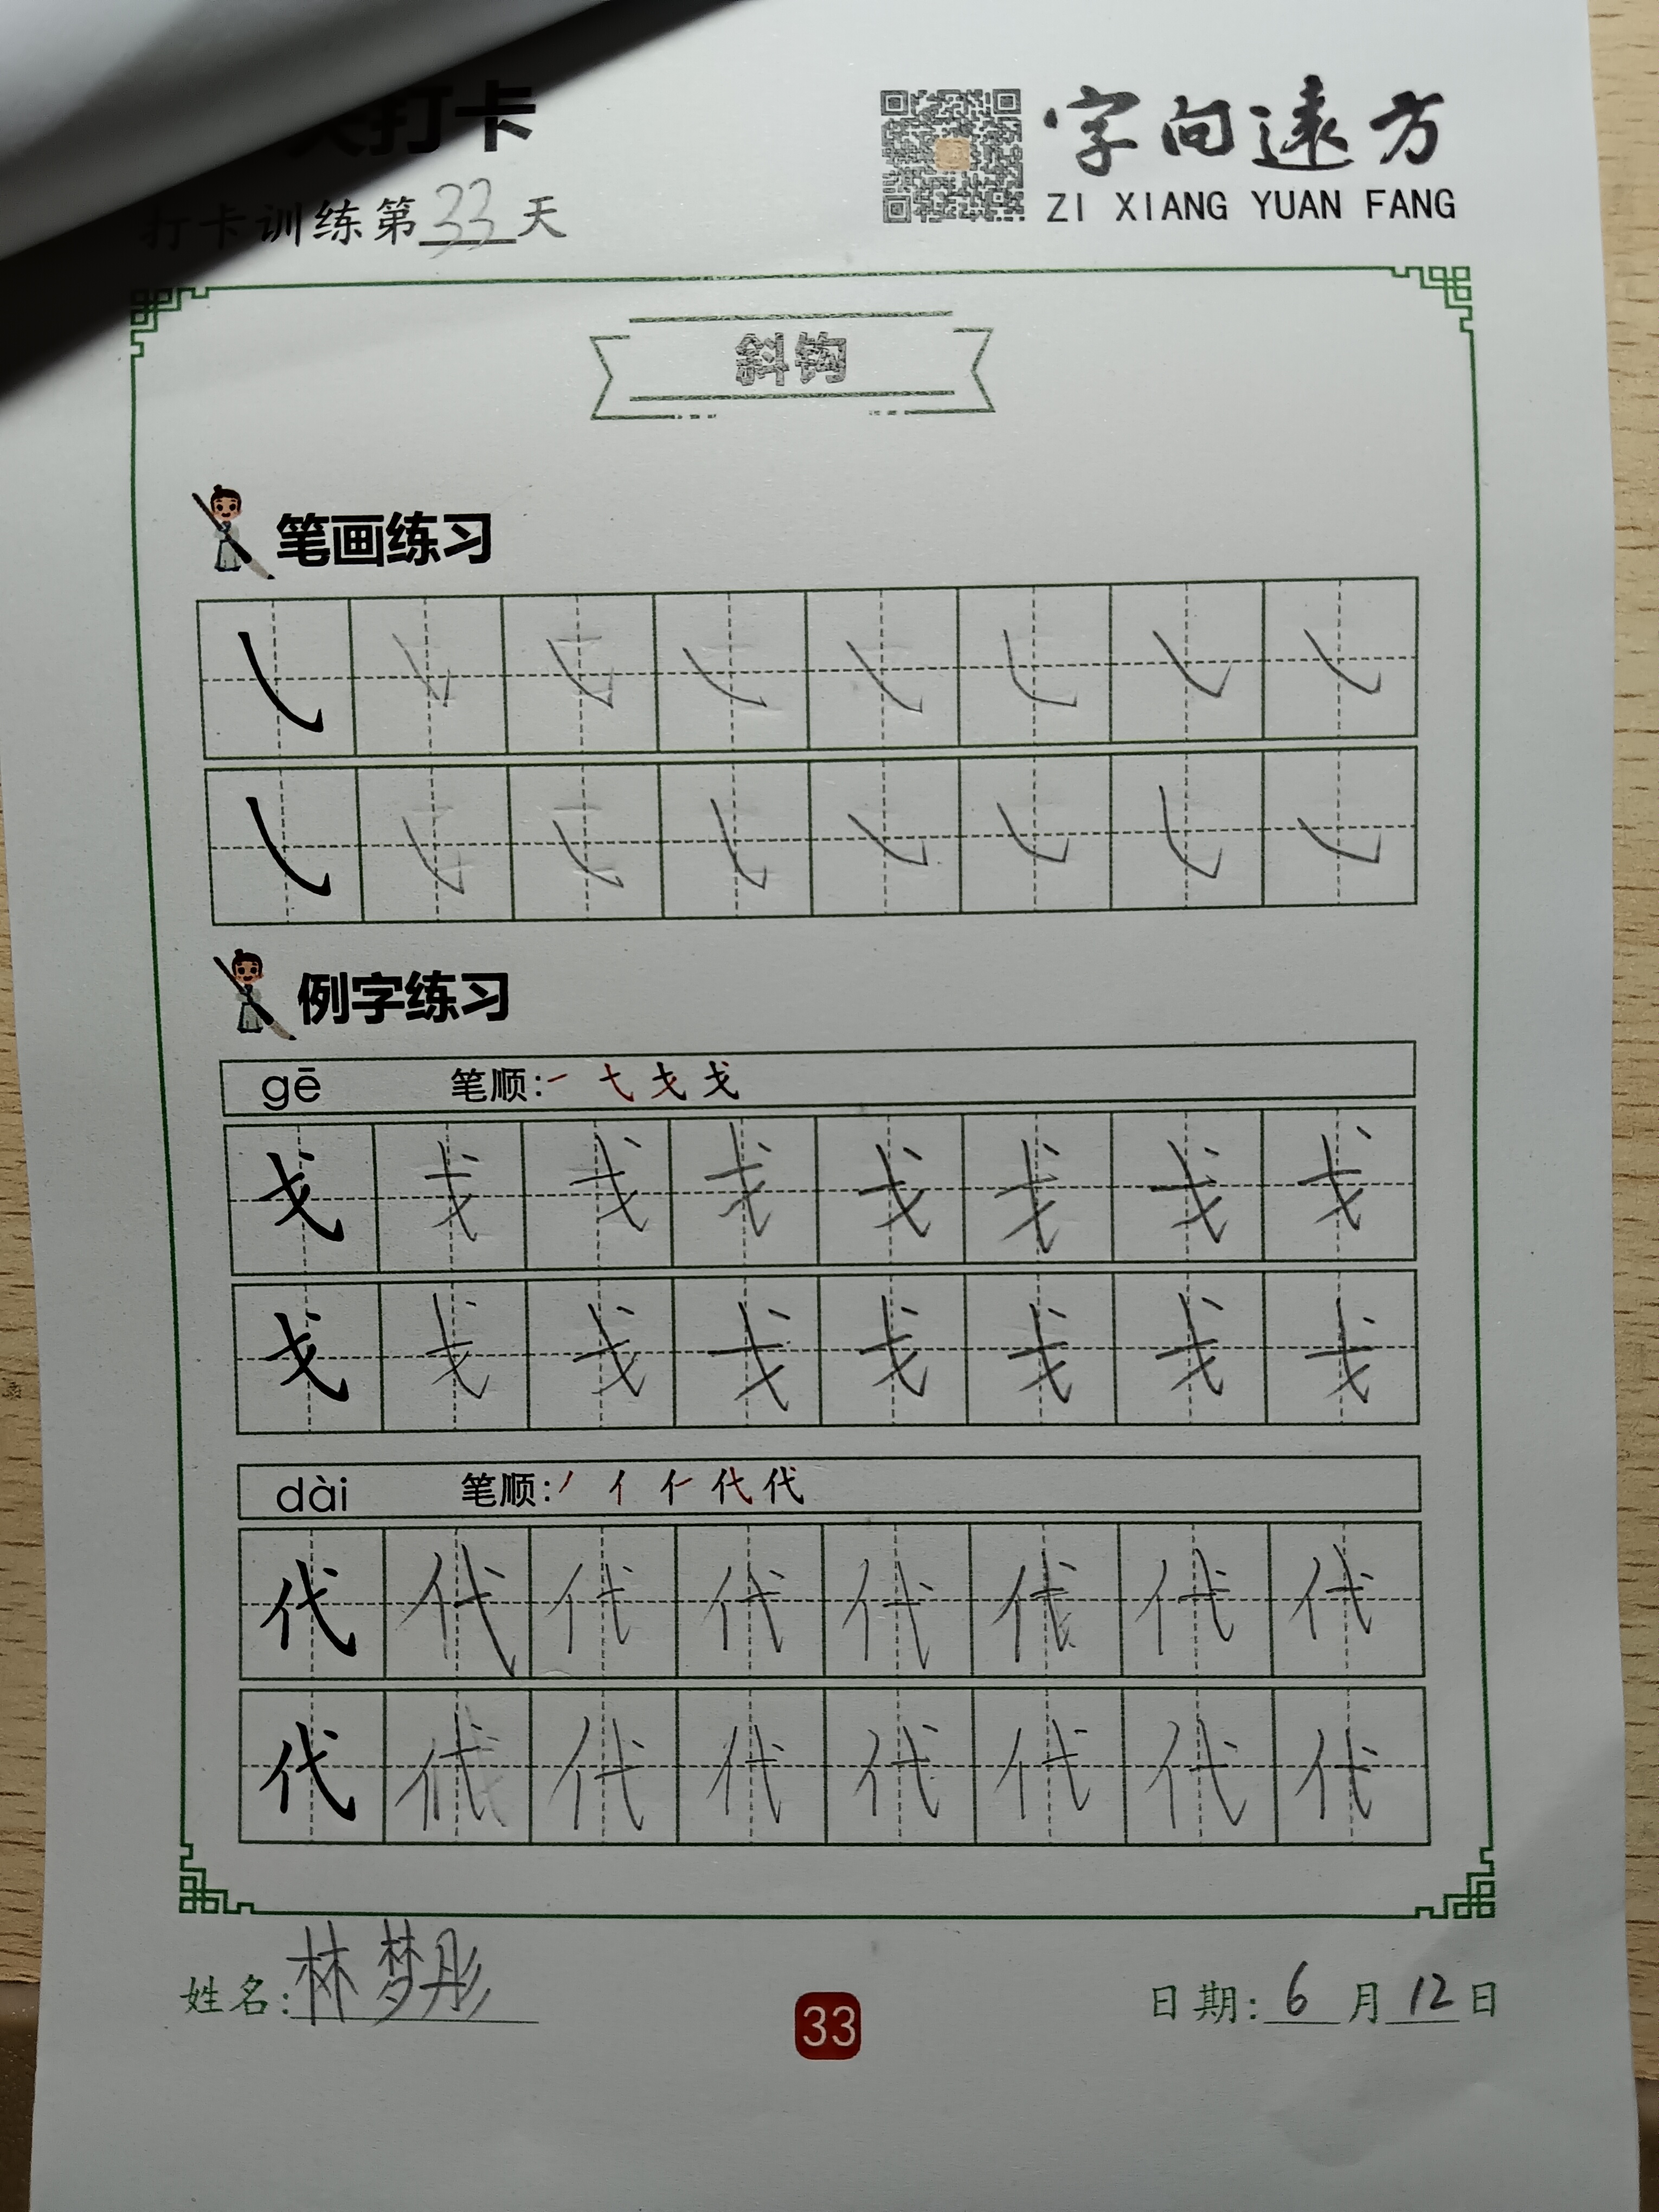 天打卡
字向遠方
ZI XIANG YUAN FANG
打卡训练第33天
斜钩
笔画练习
例字练习
gē 笔顺:一 弋 戈 戈
戈 戈 戈 戈 戈 戈 戈 戈
戈 戈 戈 戈 戈 戈 戈 戈
dài 笔顺:丿 亻 仁 代 代
代 代 代 代 代 代 代 代
代 代 代 代 代 代 代 代
姓名:林梦彤
33
日期:6月12日